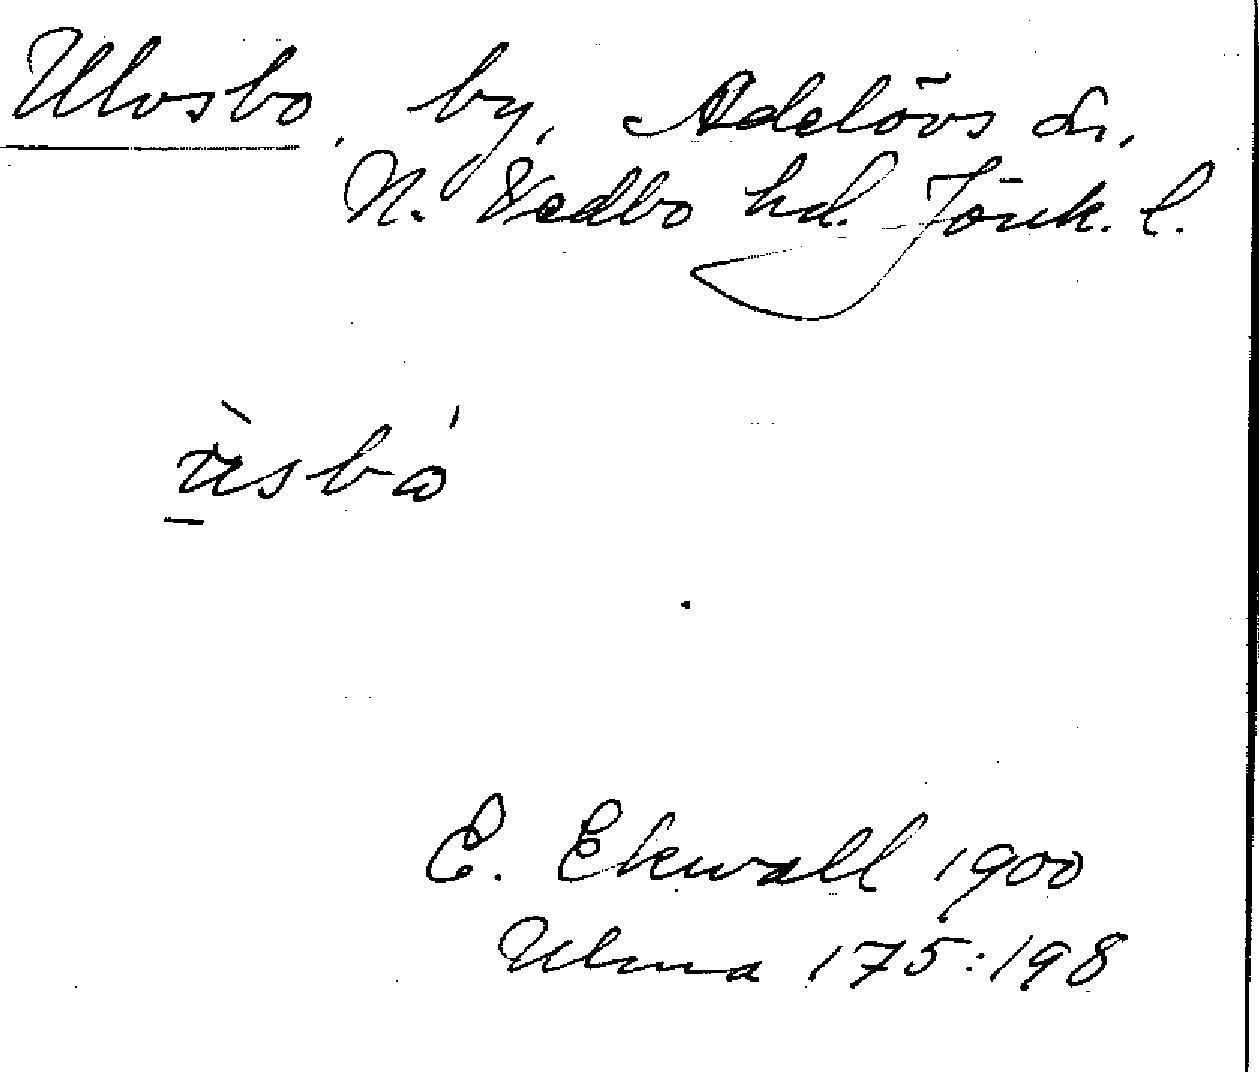 Ulvsbo, by, Adelövs sn,
N. Vedbo hd. Jönk. l.
E. Ekwall 1900
Ulma 175:198